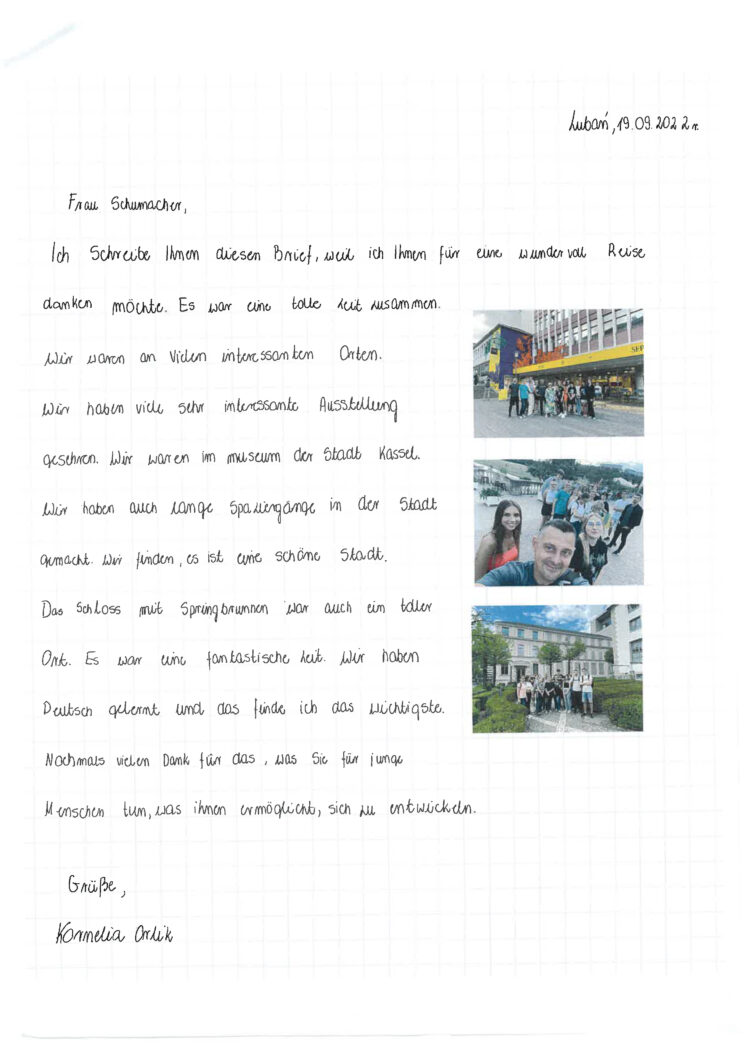 Lubań, 19.09.2022r.
Frau Schumacher,
Ich Schreibe Ihnen diesen Brief, weil ich Ihnen für eine wundervoll Reise
danken möchte. Es war eine tolle Zeit zusammen.
Wir waren an vielen interessanten Orten.
Wir haben viele sehr interessante Ausstellung
gesehren. Wir waren im museum der Stadt Kassel.
Wir haben auch lange Spaziergänge in der Stadt
gemacht. Wir finden, es ist eine schöne Stadt.
Das Schloss mit Springbrunnen war auch ein toller
Ort. Es war eine fantastische Zeit. Wir haben
Deutsch gelernt und das finde ich das wichtigste.
Nochmals vielen Dank für das, was Sie für junge
Menschen tun, was ihnen ermöglicht, sich zu entwickeln.
Grüße,
Kornelia Orlik